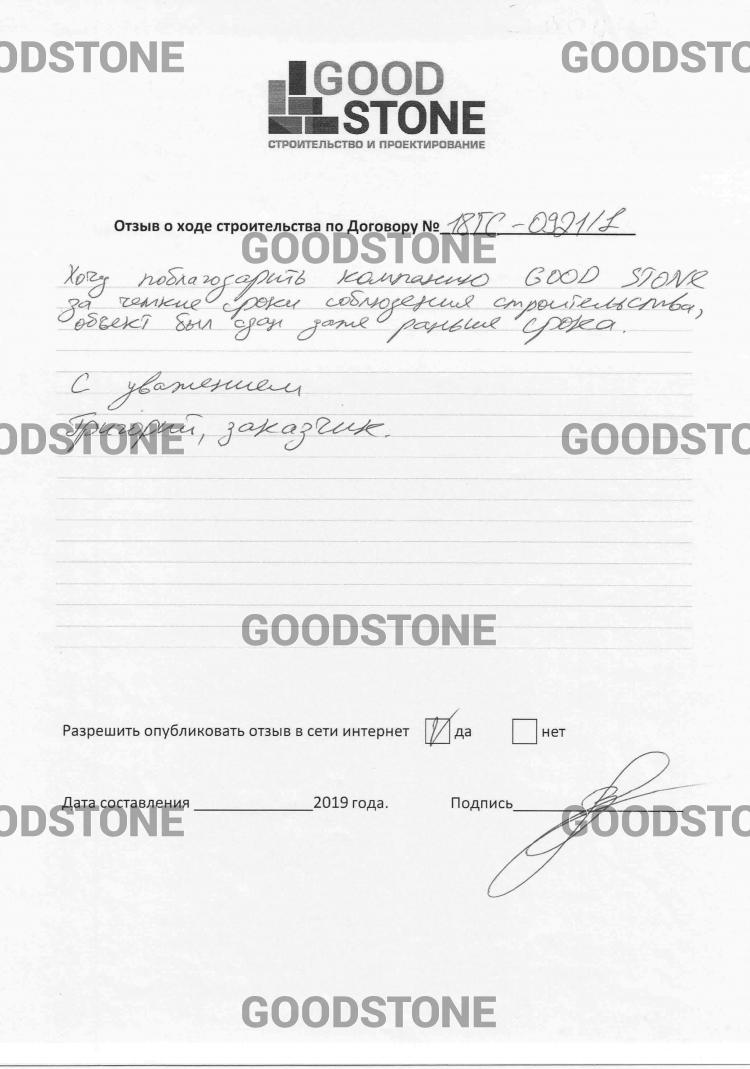 GOODSTONE GOODSTONE
GOOD
STONE
СТРОИТЕЛЬСТВО И ПРОЕКТИРОВАНИЕ
Отзыв о ходе строительства по Договору № 18ГС-0921/1
GOODSTONE
Хочу поблагодарить компанию GOOD STONE
за четкие сроки соблюдения строительства,
объект был сдан даже раньше срока.
С уважением
Григорий, заказчик.
GOODSTONE GOODSTONE
GOODSTONE
Разрешить опубликовать отзыв в сети интернет да нет
Дата составления ______________2019 года. Подпись____________________
GOODSTONE GOODSTONE
GOODSTONE